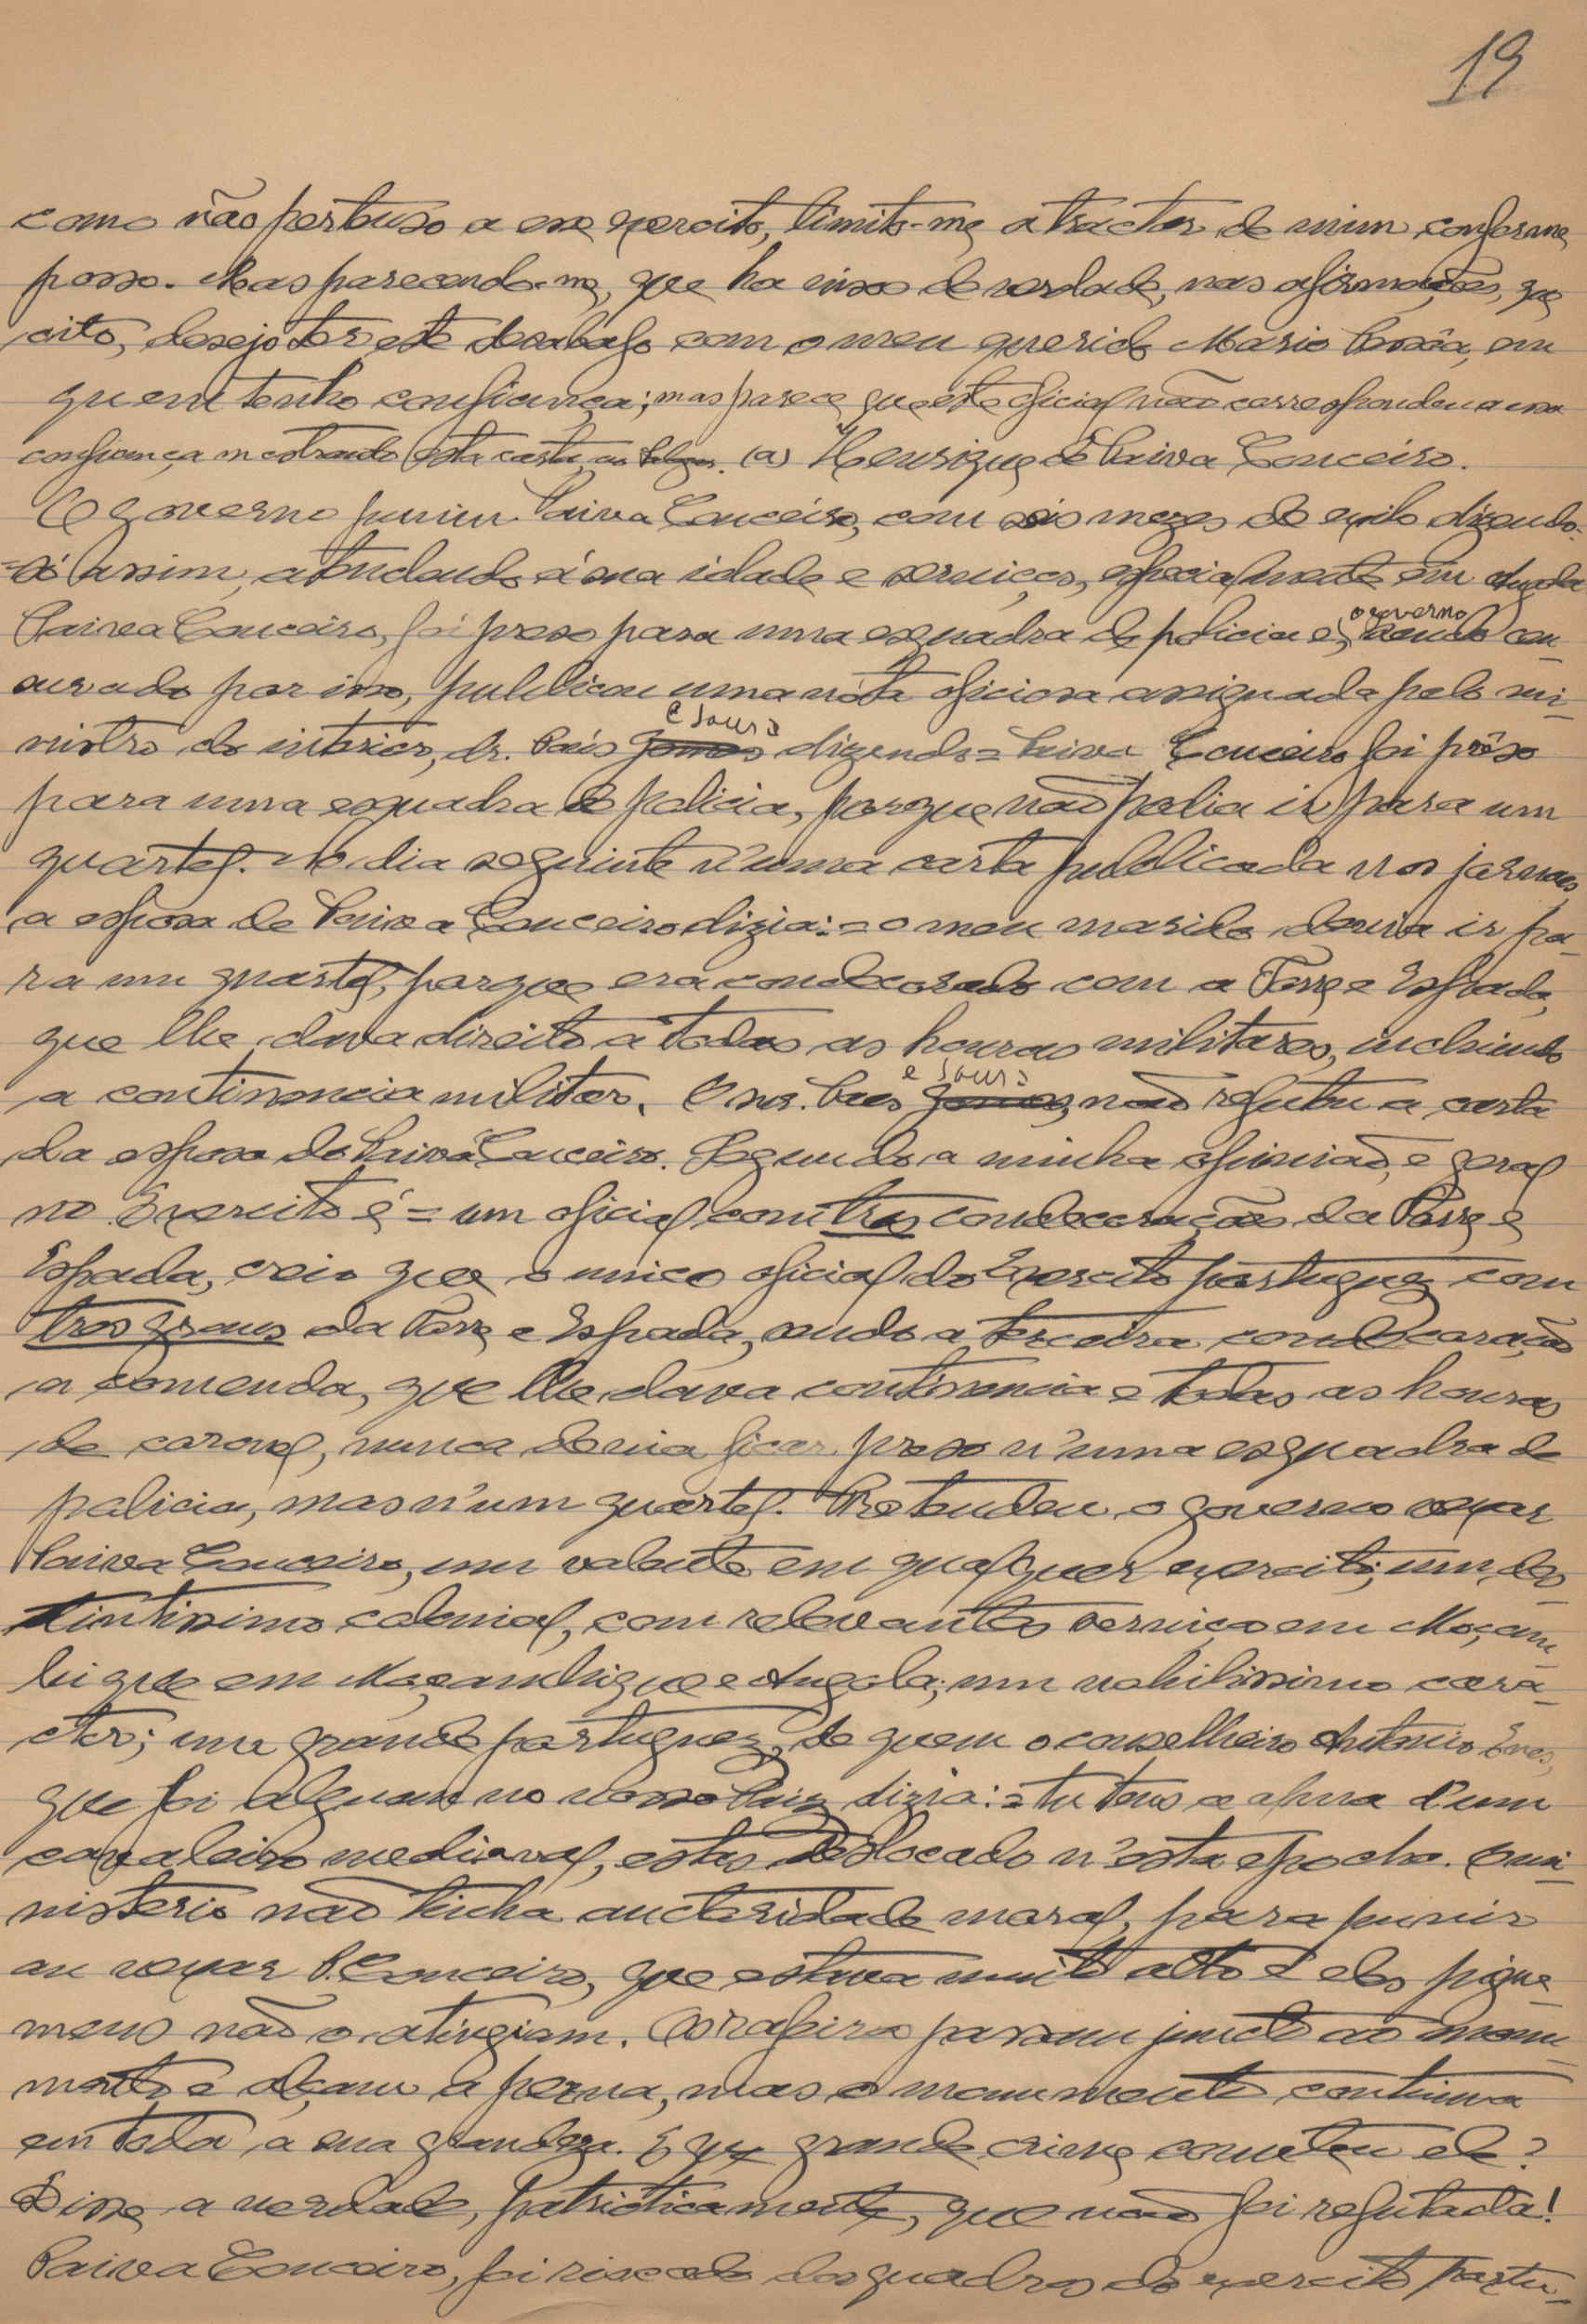 19
como não pertenso a ese exercito, limito-me, a tractar de mim conforme
posso. Mas parecendo-me, que ha niso de verdade, nas afirmações, que
cito, desejo ter este desabafo com o meu querido Mario Pessôa, em
quem tenho confiança; mas parece que este oficial não correspondeu a essa
confiança mostrando esta carta (a) Henrique de Paiva Couceiro.
O governo puniu Paiva Couceiro, com seis mezes de exilo dizendo-
=só assim, atendendo á sua idade e serviços, especialmente em Angola
Paiva Couceiro, foi preso para uma esquadra de policia e, o governo sendo cen-
surado por isso, publicou uma nóta oficiosa assignada pelo mi-
nistro do interior, dr. Pais e Sousa dizendo = Paiva Couceiro foi prêso
para uma esquadra de policia, porque não podia ir para um
quartel. No dia seguinte n'uma carta publicada nos jornaes,
a esposa de Paiva Couceiro dizia: = o meu marido devia ir pa-
ra um quartel, porque era condecorado com a Torre e Espada,
que lhe dava direito a todas as honras militares, incluindo
a continencia militar. O snr. Paes e Sousa não refutou a carta
da esposa de Paiva Couceiro. Segundo a minha opinião, e geral
no Exercito é = um oficial com tres condecorações da Torre e
Espada, creio que o unico oficial do Exercito portuguez com
tres graus da Torre e Espada, sendo a terceira condecoração
a comenda, que lhe dava continencia e todas as honras
de coronel, nunca devia ficar preso n'uma esquadra de
policia, mas n'um quartel. Pretendeu o governo vexar
Paiva Couceiro, um valente em qualquer exercito; um des-
tintissimo colonial, com relevantes serviços em Moçam-
bique em Moçambique e Angola; um nobilissimo cara-
cter; um grande portuguez, de quem o conselheiro Antonio Enes,
que foi alguem no nosso Paiz dizia: = tu tens a alma d'um
cavaleiro medieval, estás deslocado n'esta epocha. O mi-
nisterio não tinha auctoridade moral, para punir
ou vexar P. Couceiro, que estava muito alto e eles pigme-
meus não o atingiam. Os rafeiros passam junto ao monu-
mento e alçam a perna, mas o monumento continua
em toda a sua grandeza. E que grande crime cometeu ele?
Disse a verdade, patrioticamente, que não foi refutada!
Paiva Couceiro, foi riscado dos quadros do exercito portu-